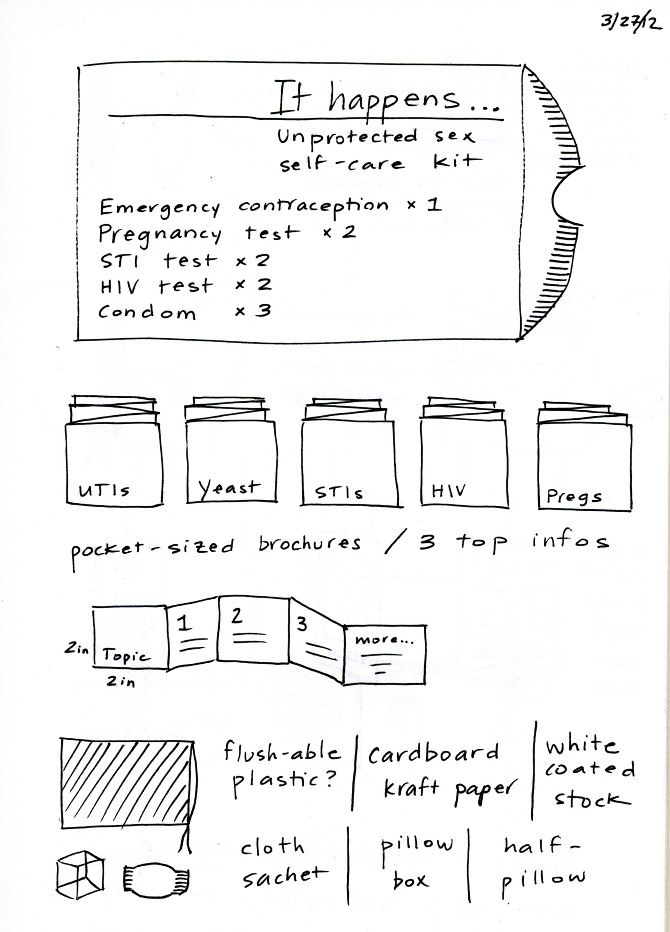 3/27/12
It happens...
Unprotected sex
self-care kit
Emergency contraception x 1
Pregnancy test x 2
STI test x 2
HIV test x 2
Condom x 3
UTIs
Yeast
STIs
HIV
Pregs
pocket-sized brochures / 3 top infos
2in
Topic
1
2
3
more...
2in
flush-able
plastic?
cardboard
kraft paper
white
coated
stock
cloth
sachet
pillow
box
half-
pillow